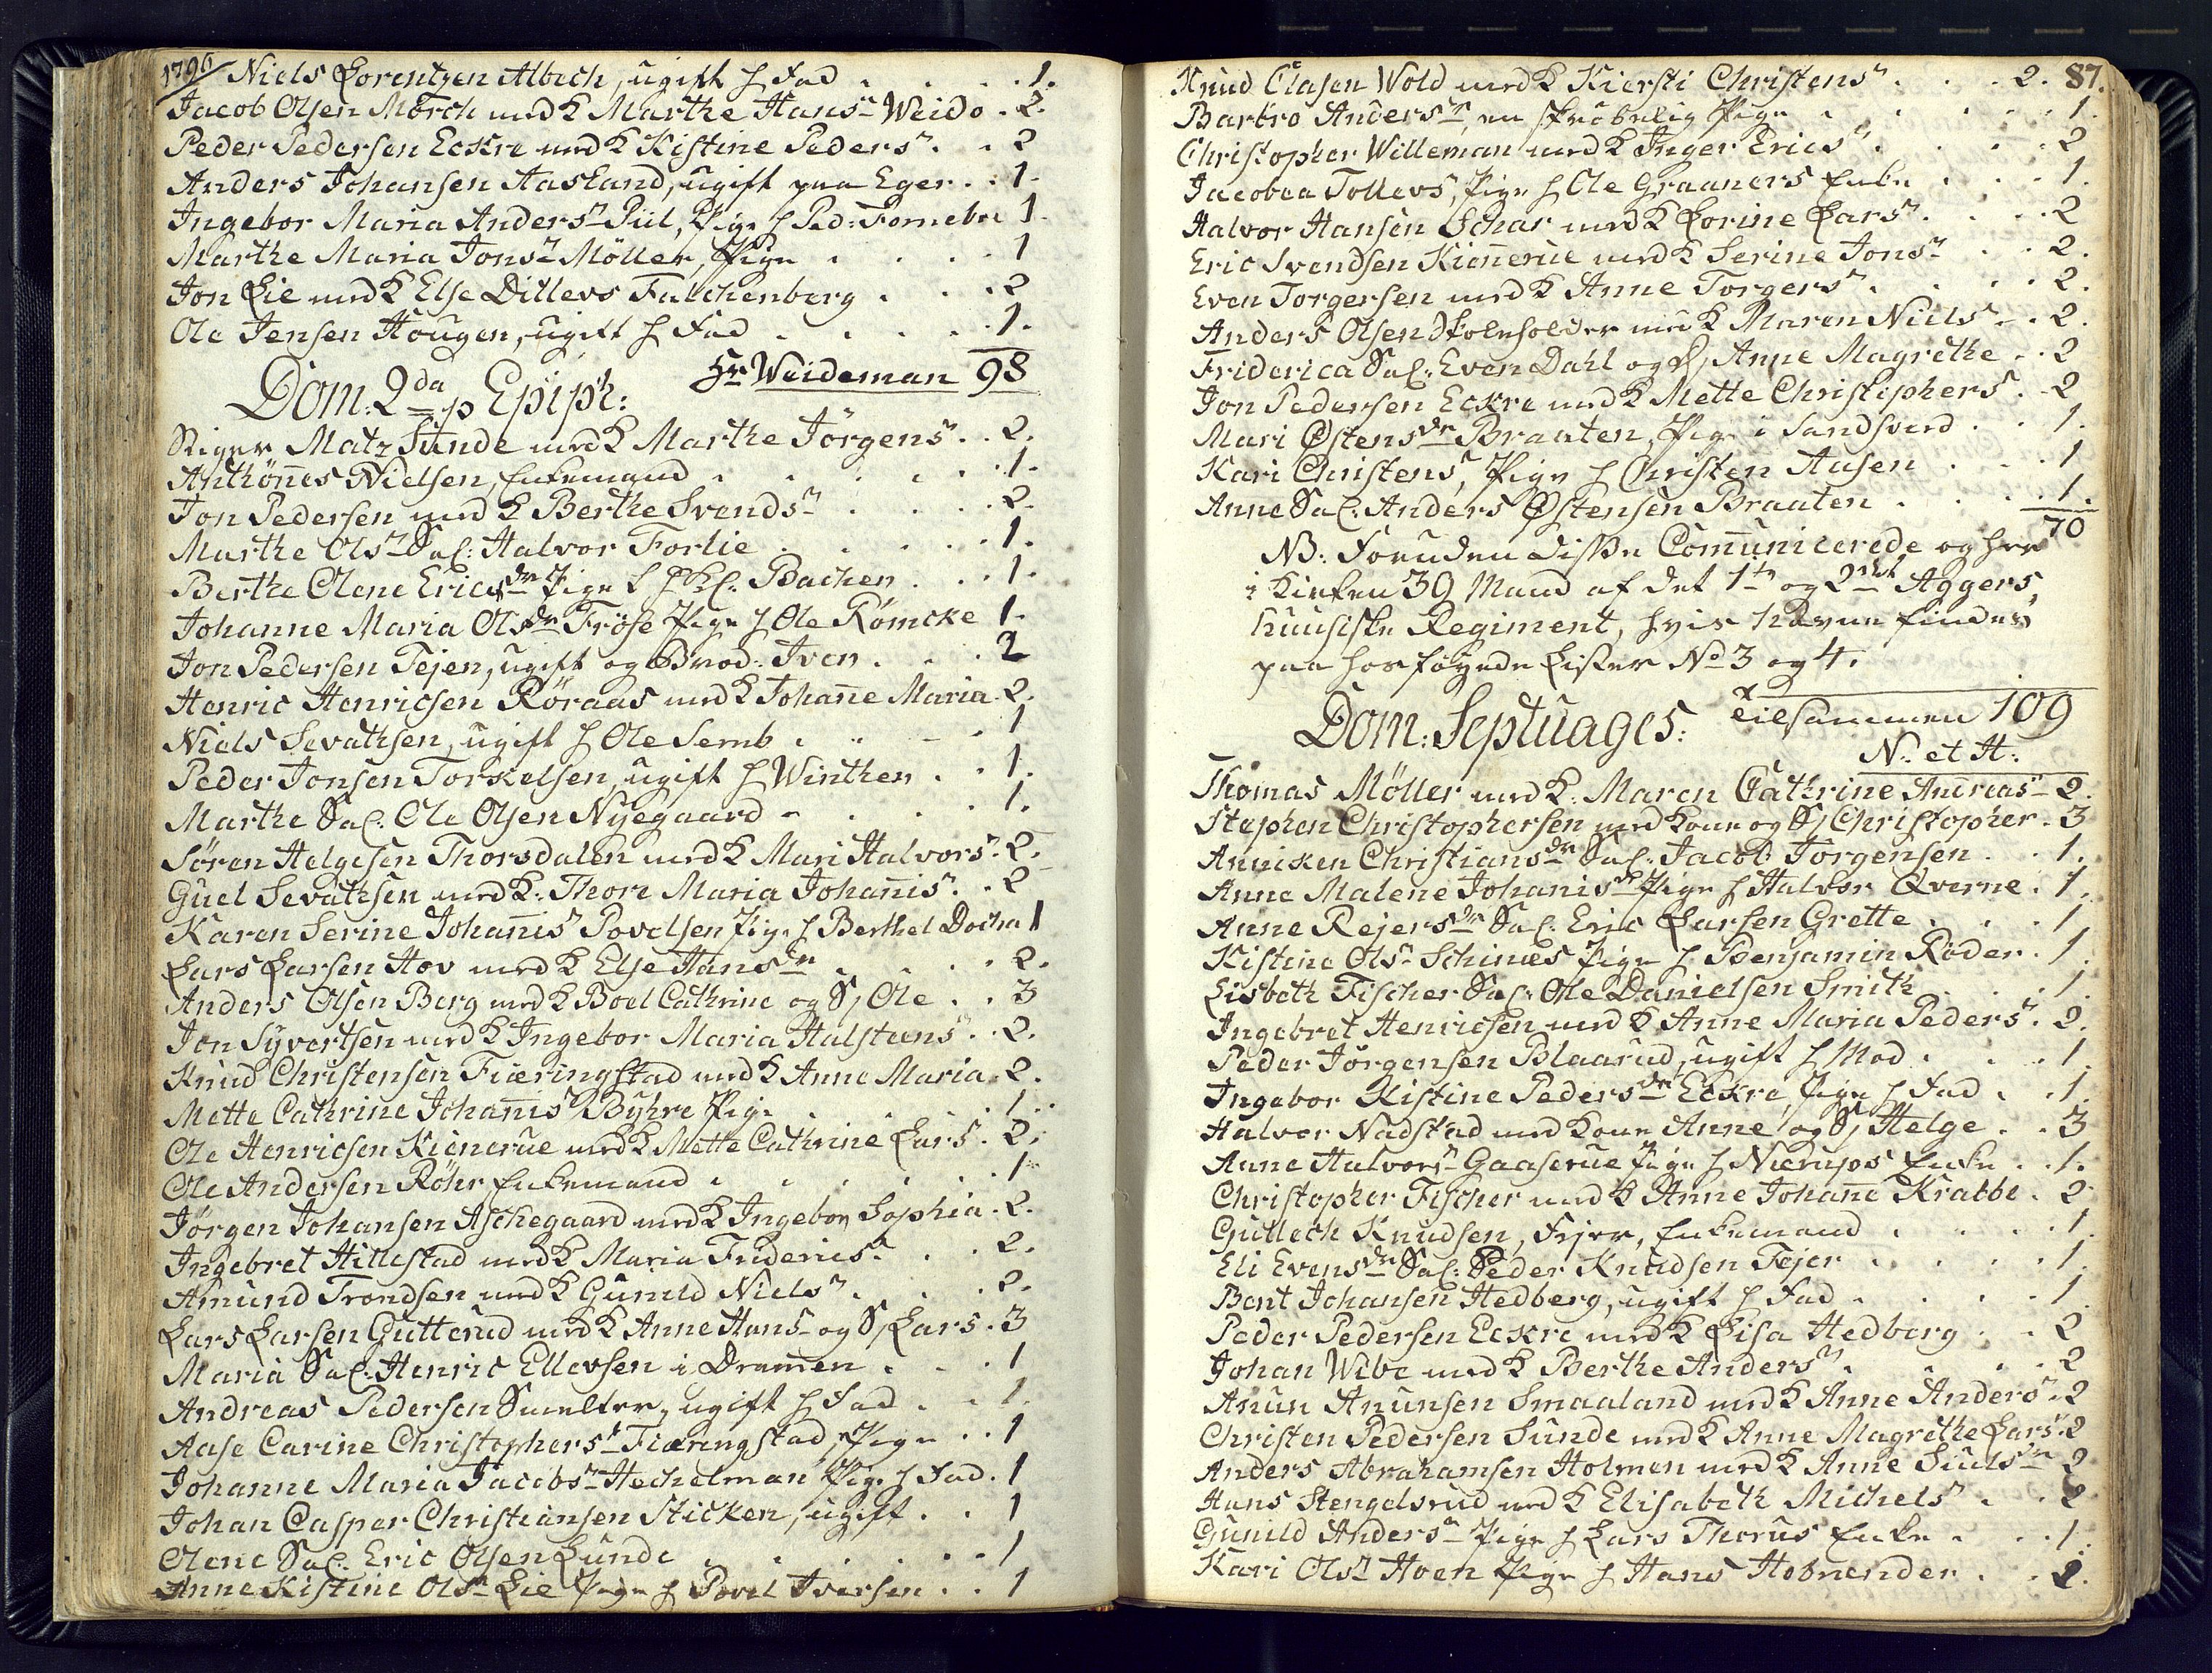 1796 Niels Lorentzen Albech, ugift h Fad . . . . 1.
Jacob Olsen Mörch med K Marthe Hansr Weido . 2.
Peder Pedersen Eckre med K Kistine Pedersr . . 2
Anders Johansen Aasland, ugift paa Eger . . 1.
Ingebor Maria Andersr Piil, Pige h Ped: Fornebo 1.
Marthe Maria Jonsr Möller, Pige . . . . 1
Jon Lie med K Else Ditlevs Falchenberg . . . 2
Ole Jensen Hougen, ugift h Fad . . . . . 1.
Dom: 2da p Epiph: Hr Weideman 98
Stiger Matz Sunde med K Marthe Jörgens . . 2.
Anthönnes Nielsen, Enkemand . . . . . 1.
Jon Pedersen med K Berthe Svendsr . . . . 2.
Marthe Olsr Sal: Halvor Forlie . . . . . 1.
Berthe Olene Ericsdr Pige h Bachen . . . 1.
Johanne Maria Olsdr Fröse Pige h Ole Römcke 1.
Jon Pedersen Tejen, ugift og Brod: Iver . . . 2
Henric Henricsen Röraas med K Johane Maria . 2.
Niels Sevathsen, ugift h Ole Semb . . . . 1
Peder Jonsen Torkelsen, ugift h Winther . . 1.
Marthe Sal: Ole Olsen Nyegaard . . . . 1.
Sören Helgesen Thorsdalen med K Mari Halvors . 2.
Guel Sevathsen med K: Thore Maria Johanis . . 2
Karen Serine Johanis Povelsen Pige h Berthel 1
Lars Larsen Hov med K Else Hansdr . . . . 2.
Anders Olsen Berg med K Boel Cathrine og S, Ole . . 3
Jon Syvertsen med K Ingebor Maria Halsteens . . 2.
Knud Christensen Fiæringstad med K Anne Maria . 2.
Mette Cathrine Johanis Byhre Pige . . . . 1.
Ole Henricsen Kienerue med K Mette Cathrine Lars . 2.
Ole Andersen Röhr, Enkemand . . . . . 1
Jörgen Johansen Aschegaard med K Ingebor Sophia . 2.
Ingebret Hillestad med K Maria Friderics . . . 2.
Amund Trondsen med K Gunild Nielsr . . . . 2.
Lars Larsen Gutterud med K Anne Hans og S, Lars . 3
Maria Sal: Henric Ellevsen i Dramen . . . 1
Andreas Pedersen Smelter, ugift h Fad . . 1.
Aase Carine Christophersr Fiæringstad, Pige . . 1
Johanne Maria Jacobsr Hechelman Pige h Fad . 1
Johan Casper Christiansen Sticken, ugift . . 1
Olene Sal: Eric Olsen Lunde . . . . . 1
Anne Kistine Olsr Lie Pige h Povel Iversen . . 1
Knud Clasen Wold med K Kiersti Christensr . . . 2. 87.
Barbro Andersdr, en skröbelig Pige . . . . 1.
Christopher Willeman med K Inger Erics . . . . 2
Jacobea Tollevs, Pige h Ole Graaners Enke . . . 1.
Halvor Hansen Schar med K Lorine Larsr . . . . 2
Eric Svendsen Kiennerue med K Serine Jonsr . . 2.
Even Torgersen med K Anne Torgersr . . . . 2.
Anders Olsen Skoleholder med K Maren Niels . . 2.
Friderica Sal: Even Dahl og D, Anne Magrethe . . 2
Jon Pedersen Eckre med K Mette Christophers . 2
Mari Østensdr Braaten, Pige i Sandsverd . . 1.
Kari Christens, Pige h Christen Aasen . . . 1
Anne Sal: Anders Østensen Braaten . . . . 1.
70
NB: Foruden disse Comunicerede og her
i Kirken 39 Mand af det 1te og 2det Aggers
huusiske Regiment, hvis Navne findes
paa hosföyede Lister No 3 og 4.
Tilsammen 109
Dom: Septuages:
N: et H:
Thomas Möller med K: Maren Cathrine Andreasr 2.
Stephen Christophersen med Kone og S, Christopher . 3
Anniken Christiansdr Sal: Jacob Torgensen . . 1.
Anne Malene Johanisdr Pige h Halvor Qverne . 1.
Anne Rejersdr Sal: Eric Larsen Grette . . . 1
Kistine Olsr Schinæs Pige h Benjamin Röder . 1.
Lisbeth Fischer Sal: Ole Danielsen Smith . . . 1.
Ingebret Henricsen med K Anne Maria Peders . 2.
Peder Jörgensen Blaarud, ugift h Mod . . . 1
Ingebor Kistine Pedersdr Eckre, Pige h Fad . . 1.
Halvor Nadstad med Kone Anne og S, Helge . . 3
Anne Halvorsr Gaaserue Pige h Nierups Enke . . 1.
Christopher Fischer med K Anne Johane Krabbe . 2
Gullech Knudsen, Fejer, Enkemand . . . . 1
Eli Evensdr Sal: Peder Knudsen Fejer . . . . 1
Bent Johansen Hedberg, ugift h Fad . . . . 1
Peder Pedersen Eckre med K Lisa Hedberg . . 2
Johan Wibe med K Berthe Andersr . . . . 2
Anun Anunsen Smaaland med K Anne Anders . 2
Christen Pedersen Sunde med K Anne Magrethe Lars . 2
Anders Abrahamsen Holmen med K Anne 2
Hans Stengelsrud med K Elisabeth Michels . . 2
Gunild Andersr Pige h Lars Thorus Enke . . . 1.
Kari Olsr Hoen Pige h Hans . . 1.